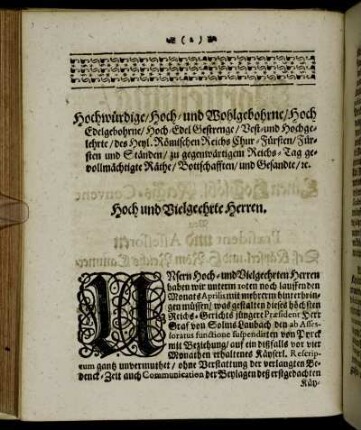 ( 2 )
Hochwürdige/ Hoch- und Wohlgebohrne/ Hoch
Edelgebohrne/ Hoch-Edel Gestrenge/ Vest- und Hochge-
lehrte/ des Heyl. Römischen Reichs Chur-Fürsten/ Für-
sten und Ständen/ zu gegenwärtigem Reichs-Tag ge-
vollmächtigte Räthe/ Bottschafften/ und Gesandte/ ꝛc.
Hoch und Vielgeehrte Herren.
UNsern Hoch- und Vielgeehrten Herren
haben wir unterm 10ten noch lauffenden
Monats Aprilis mit mehrerm hinterbrin-
gen müssen/ was gestalten dieses höchsten
Reichs-Gerichts jüngere Præsident Herr
Graf von Solms Laubach den ab Asses-
soratus functione suspendirten von Pyrck
mit Beziehung/ auf ein dißfalls vor vier
Monathen erhaltenes Käyserl. Rescrip-
tum gantz unvermuthet/ ohne Verstattung der verlangten Be-
denck-Zeit auch Communication der Beylagen deß erstgedachten
Käy-